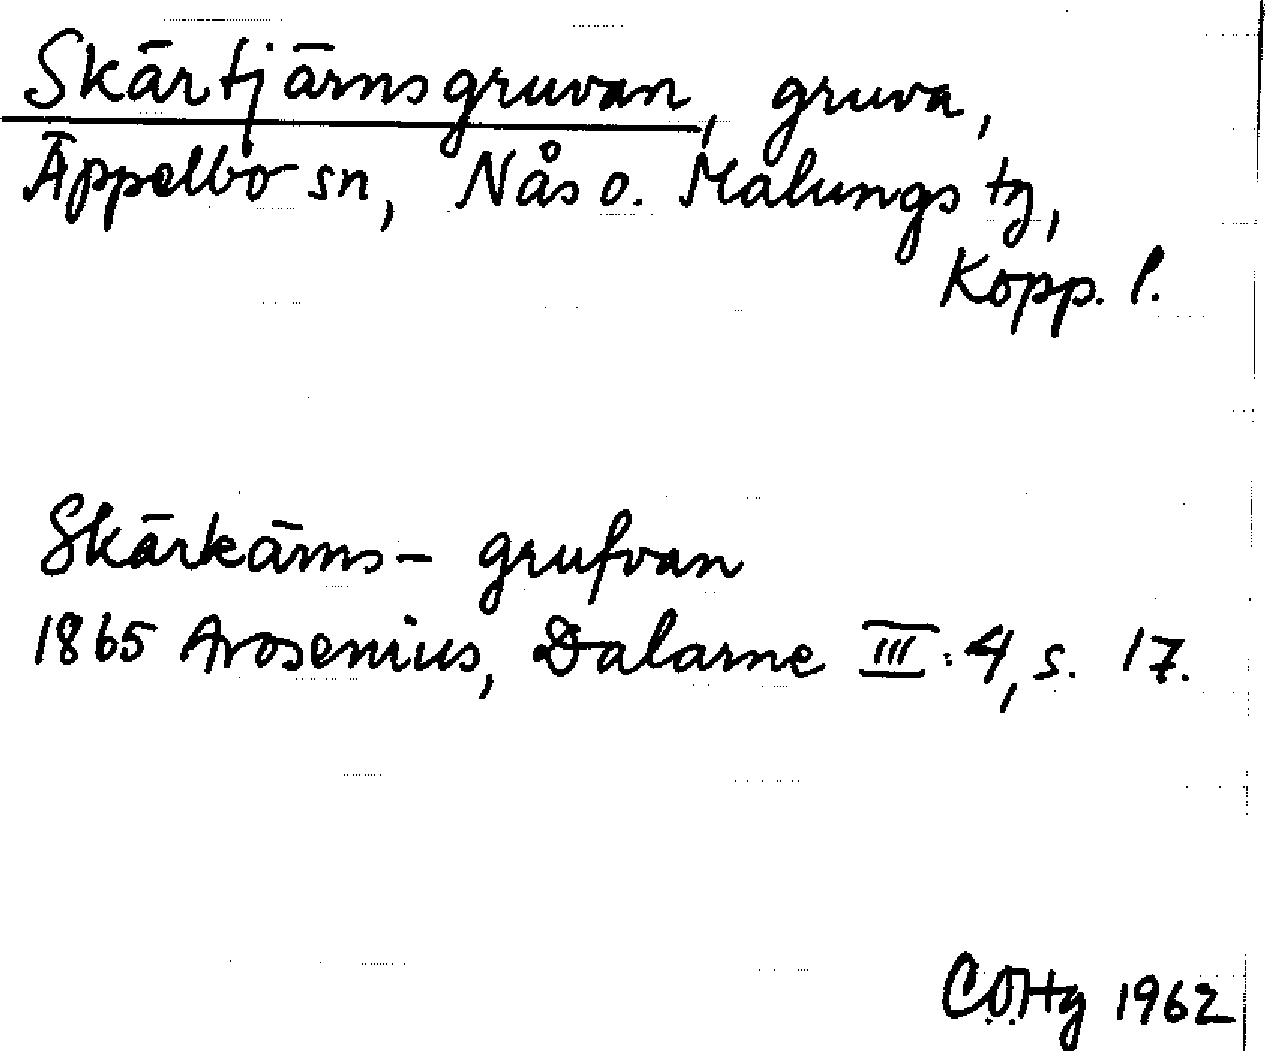 Skärtjärnsgruvan, gruva,
Äppelbo sn, Nås o. Malungs tg,
Kopp. l.
Skärkärns- grufvan
1865 Arosenius, Dalarne III:4, s. 17.
1962